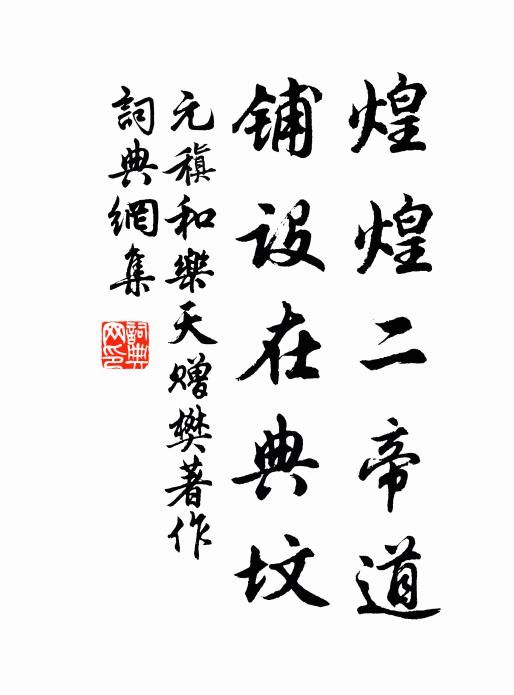 煌煌二帝道
铺设在典坟
元稹和樂天贈樊著作
詞典網集
詞典网印